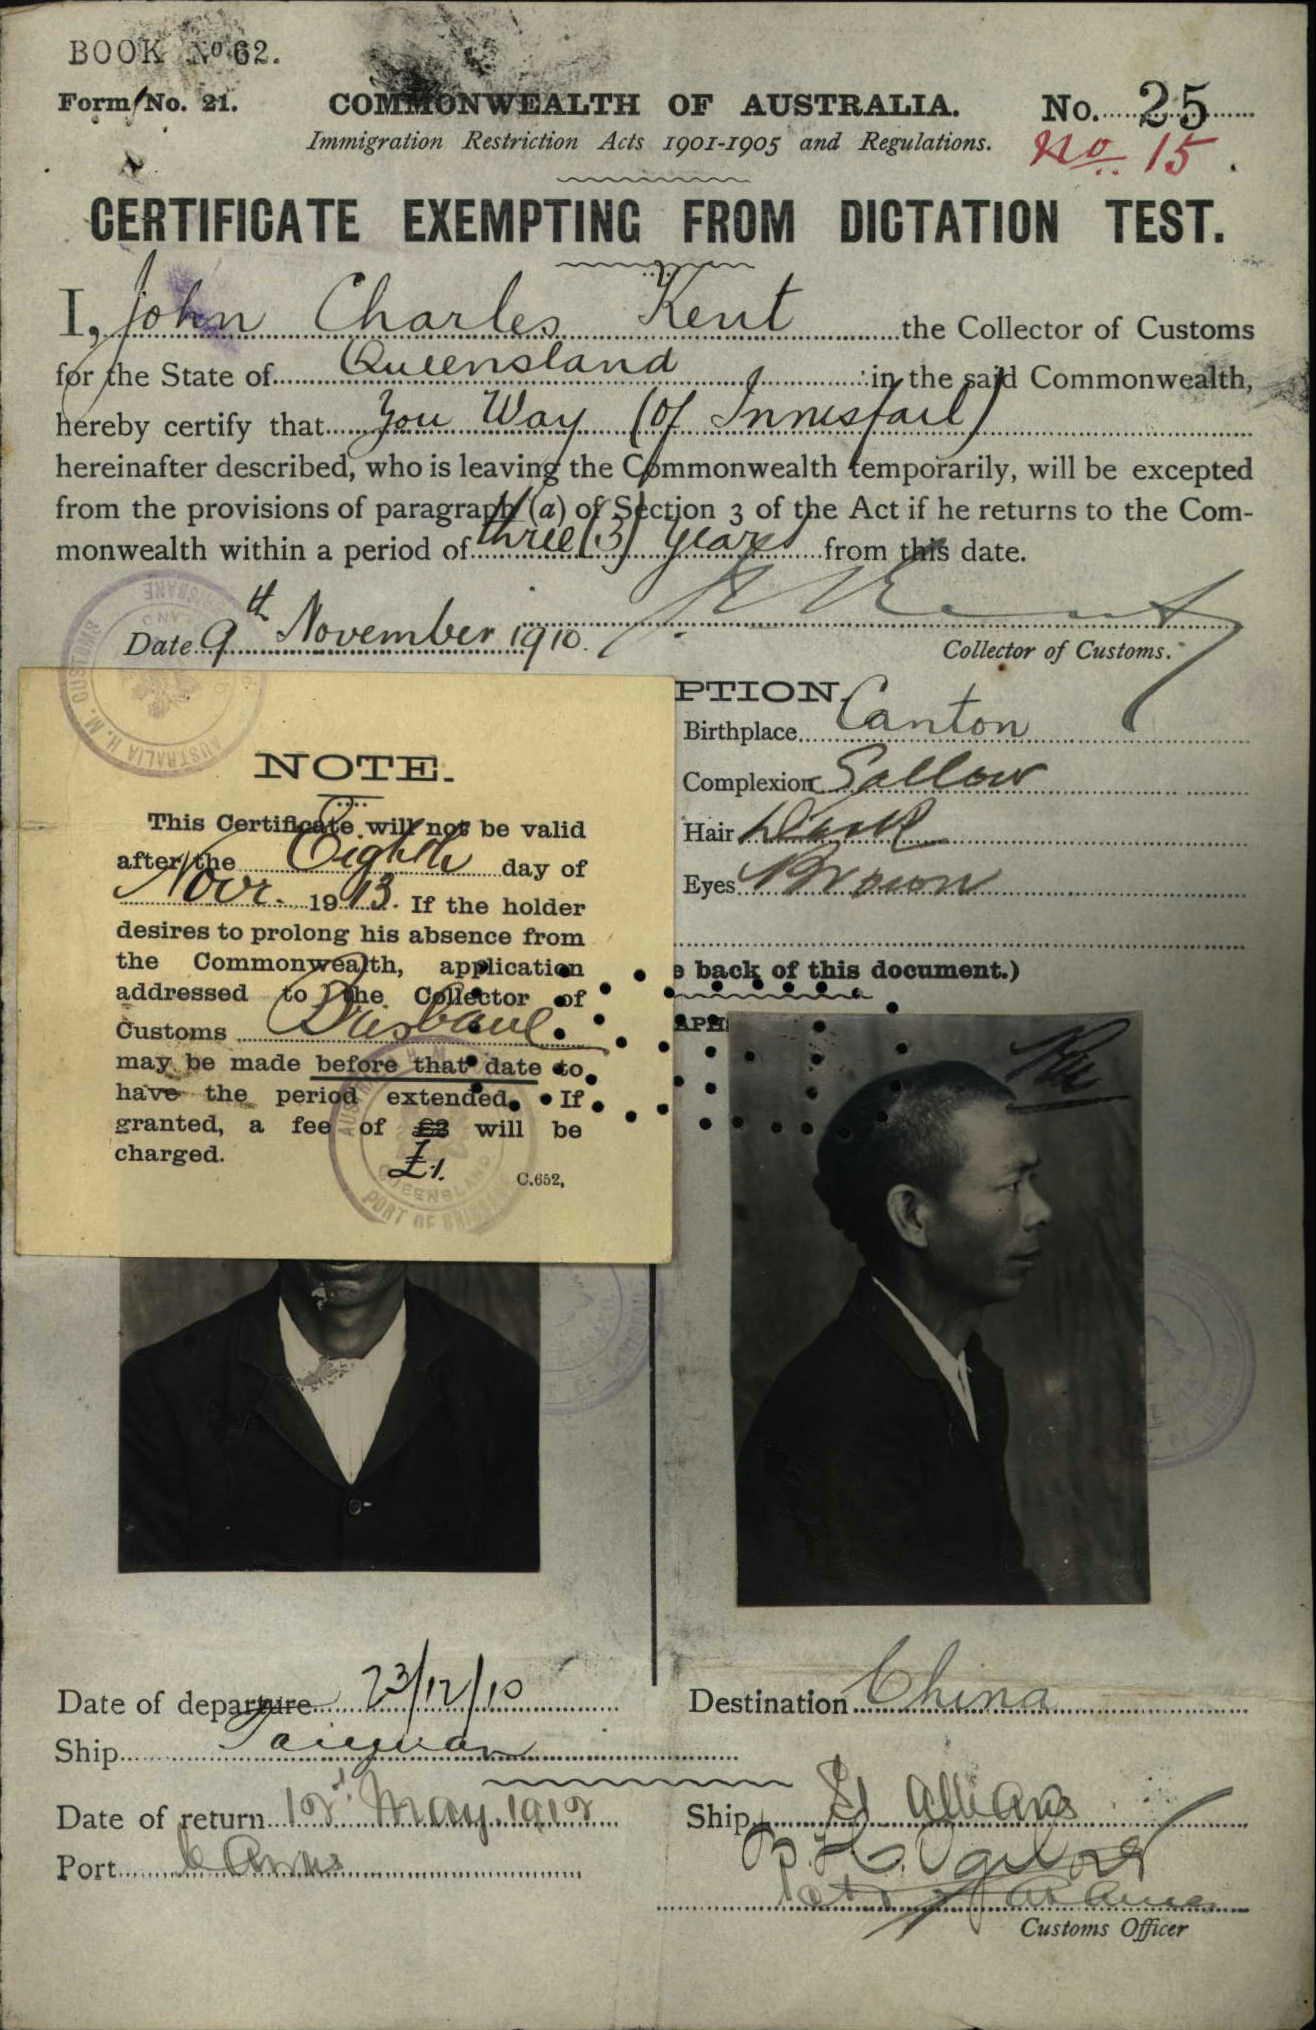 BOOK No 62.
Form No. 21.
COMMONWEALTH OF AUSTRALIA.
No. 25
Immigration Restriction Acts 1901-1905 and Regulations.
No. 15
CERTIFICATE EXEMPTING FROM DICTATION TEST.
I, John Charles Kent the Collector of Customs
for the State of Queensland in the said Commonwealth,
hereby certify that You Way (of Innisfail)
hereinafter described, who is leaving the Commonwealth temporarily, will be excepted
from the provisions of paragraph (a) of Section 3 of the Act if he returns to the Com-
monwealth within a period of three (3) years from this date.
Date 9th November 1910.
Collector of Customs.
PTION.
Birthplace Canton
Complexion Sallow
Hair Dark
Eyes Brown
e back of this document.)
APH
NOTE.
This Certificate will not be valid
after the Eighth day of
Novr. 1913. If the holder
desires to prolong his absence from
the Commonwealth, application
addressed to the Collector of
Customs Brisbane
may be made before that date to
have the period extended. If
granted, a fee of £2 will be
charged. £1.
C.652,
Date of departure 23/12/10
Destination China
Ship Taiyuan
Date of return 12th May 1912
Ship St Albans
Port Cairns
Customs Officer